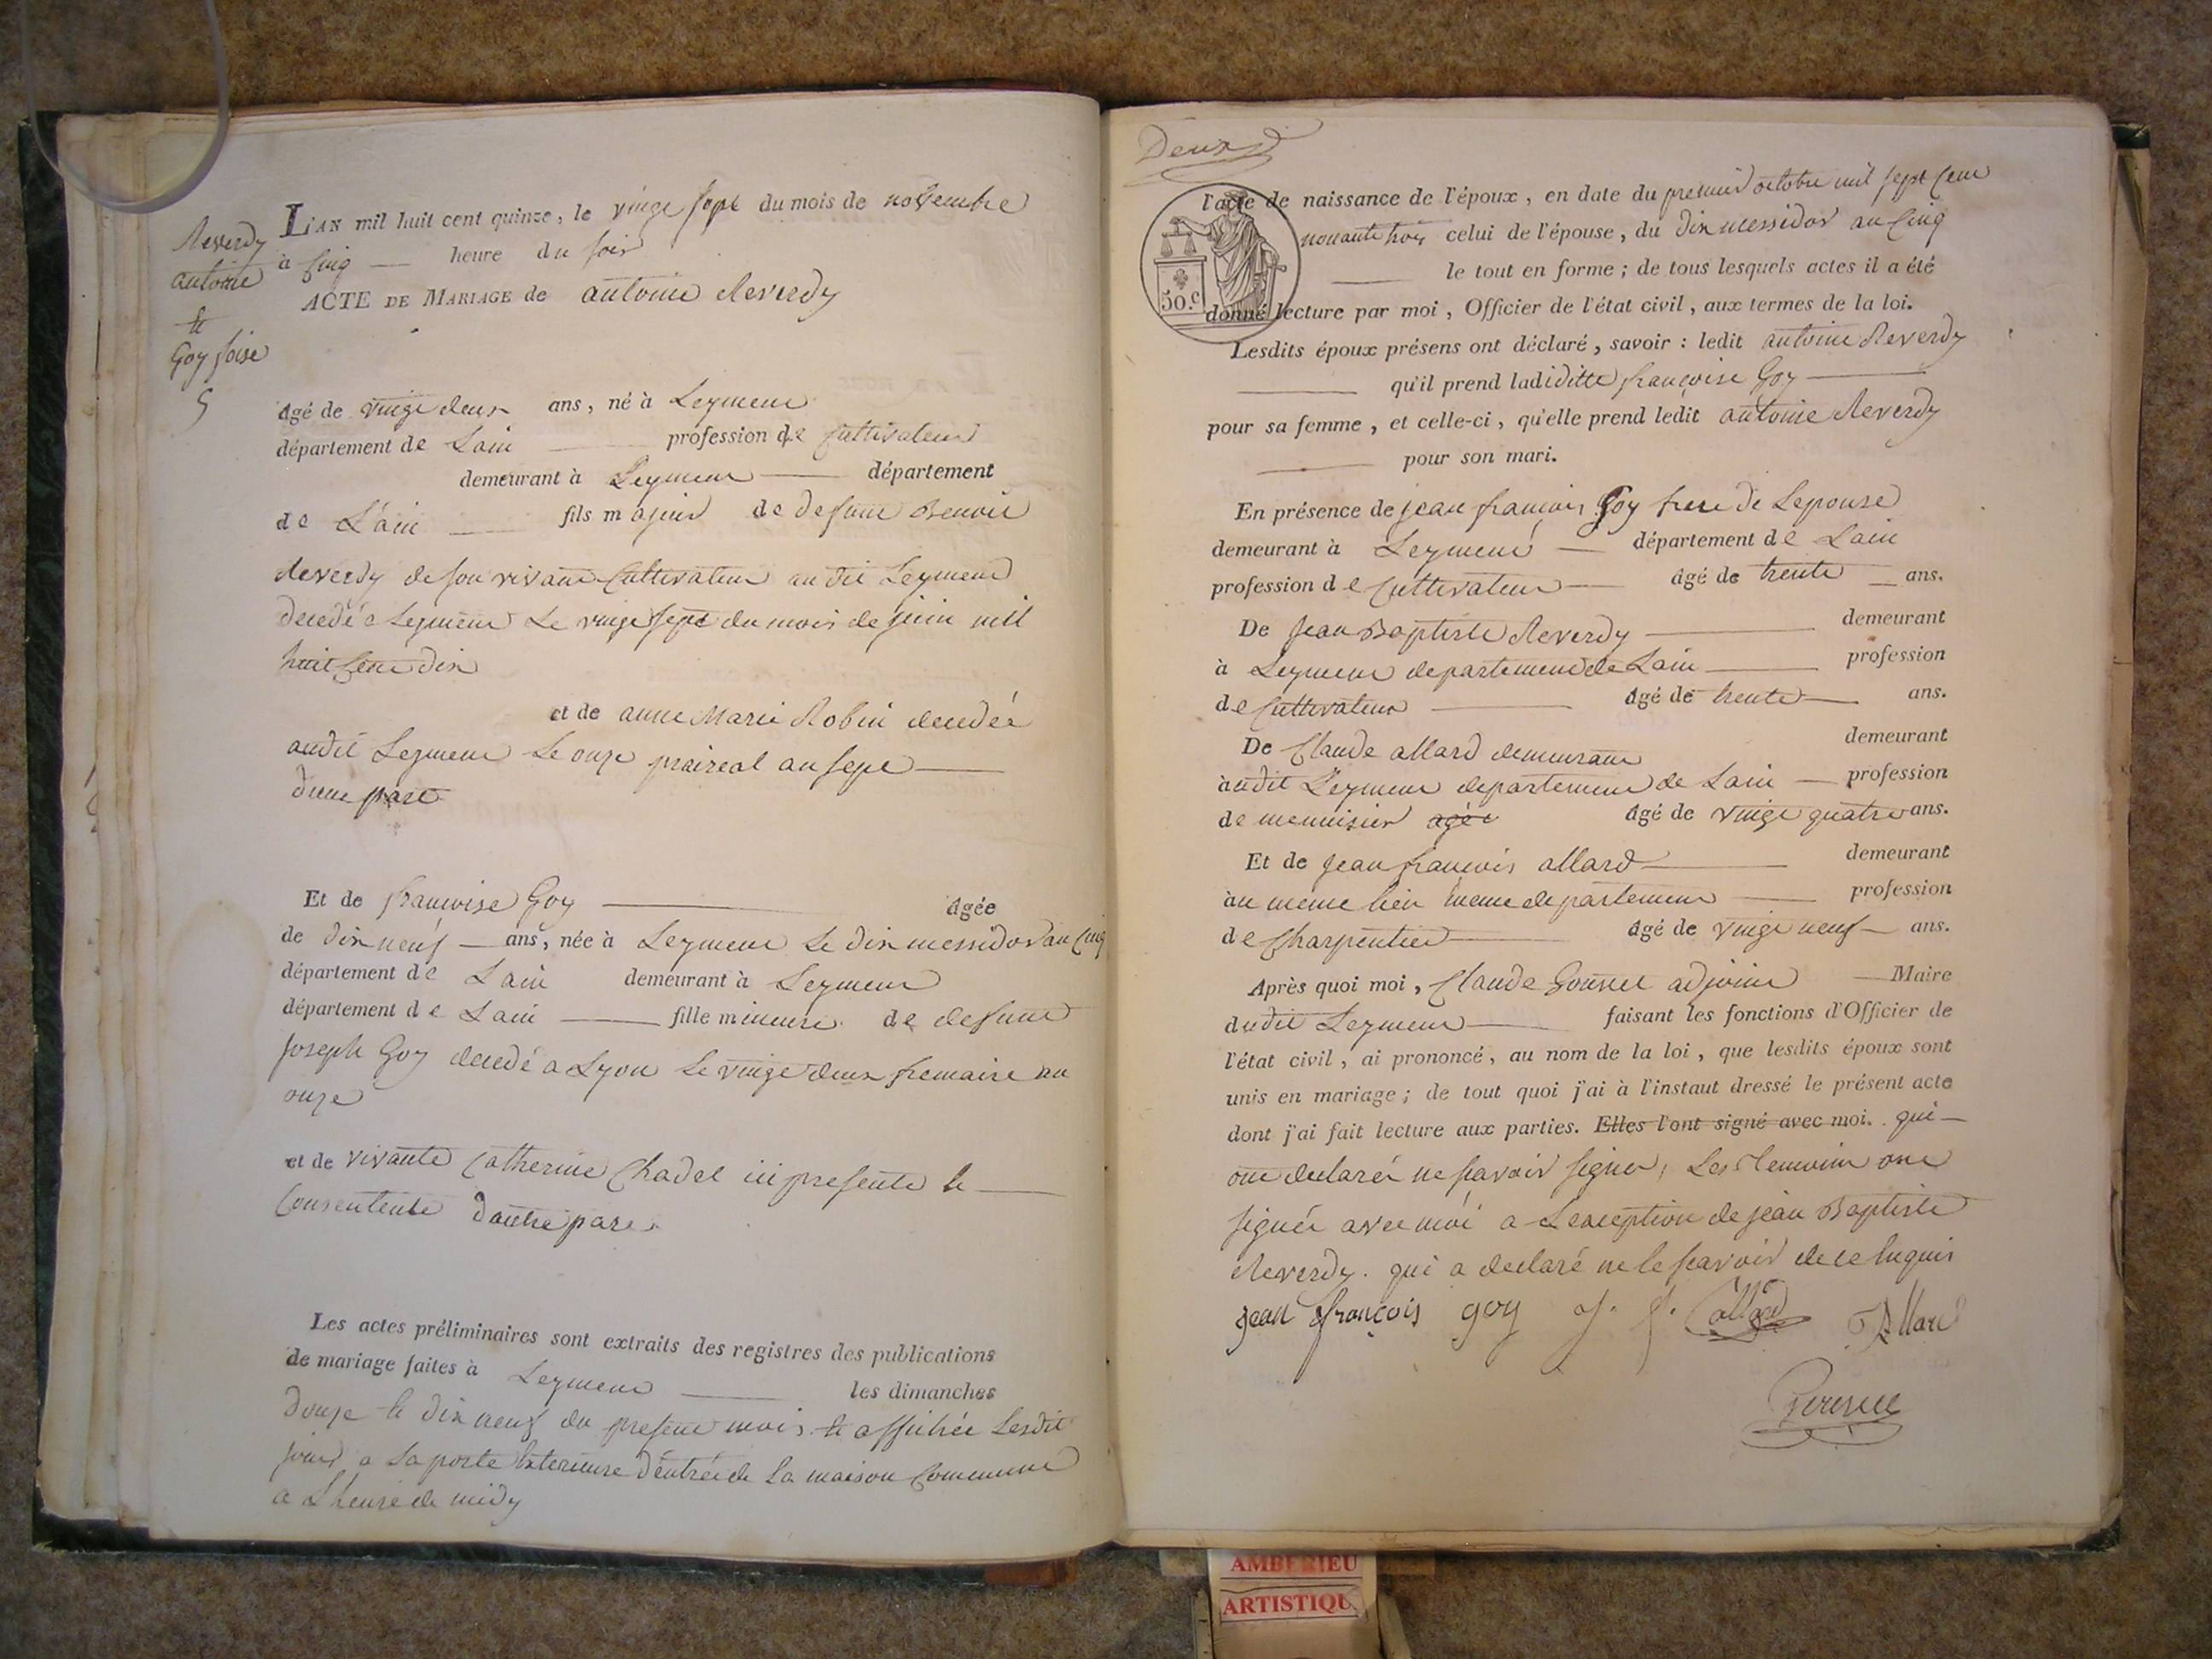 Reverdy
antoine
et
Goy foise
5
L'AN mil huit cent quinze, le vingt sept du mois de novembre
à cinq — heure du soir
ACTE DE MARIAGE de antoine Reverdy
âgé de vingt deux ans, né à Leyment
département de Lain profession de Cultivateur
demeurant à Leyment département
de L'ain fils majeur de defunt Benoit
Reverdy de son vivant Cultivateur au dit Leyment
decedé a Leyment Le vingt sept du mois de juin mil
huit Cent dix
et de anne Marie Robin decedée
audit Leyment Le onze praireal an sept
d'une part
Et de francoise Goy âgée
de dix neuf ans, née à Leyment Le dix messidor an Cinq
département de Lain demeurant à Leyment
département de Lain fille mineure de defunt
Joseph Goy decedé a Lyon Le vingt deux frimaire an
onze
et de vivante Catherine Chadel ici presente et
Consentente d'autre part.
Les actes préliminaires sont extraits des registres des publications
de mariage faites à Leyment les dimanches
douze et dix neuf du present mois et affichée Lesdit
jour a La porte Exterieure d'entrée de La maison Commune
a L'heure de midy
Deux
50.c
l'acte de naissance de l'époux, en date du premier octobre mil sept Cent
nonante trois celui de l'épouse, du dix messidor an Cinq
le tout en forme; de tous lesquels actes il a été
donné lecture par moi, Officier de l'état civil, aux termes de la loi.
Lesdits époux présens ont déclaré, savoir: ledit antoine Reverdy
qu'il prend ladiditte françoise Goy
pour sa femme, et celle-ci, qu'elle prend ledit antoine Reverdy
pour son mari.
En présence de jean francois Goy frere de Lepouse
demeurant à Leyment département de Lain
profession de Cultivateur âgé de trente ans.
De Jean Baptiste Reverdy demeurant
à Leyment departement de Lain profession
de Cultivateur âgé de trente ans.
De Claude allard demeurant demeurant
audit Leyment departement de Lain profession
de menuisier agée âgé de vingt quatre ans.
Et de Jean francois allard demeurant
au meme lieu meme departement profession
de Charpentier âgé de vingt neuf ans.
Après quoi moi, Claude adjoint Maire
dudit Leyment faisant les fonctions d'Officier de
l'état civil, ai prononcé, au nom de la loi, que lesdits époux sont
unis en mariage; de tout quoi j'ai à l'instant dressé le présent acte
dont j'ai fait lecture aux parties. Elles l'ont signé avec moi. qui
ont declarée ne scavoir signer, Les temoins ont
signée avec moi a L'exception de jean Baptiste
Reverdy. qui a declaré ne le scavoir de ce Requis
jean françois goy j. f. allard Allard
AMBERIEU
ARTISTIQU